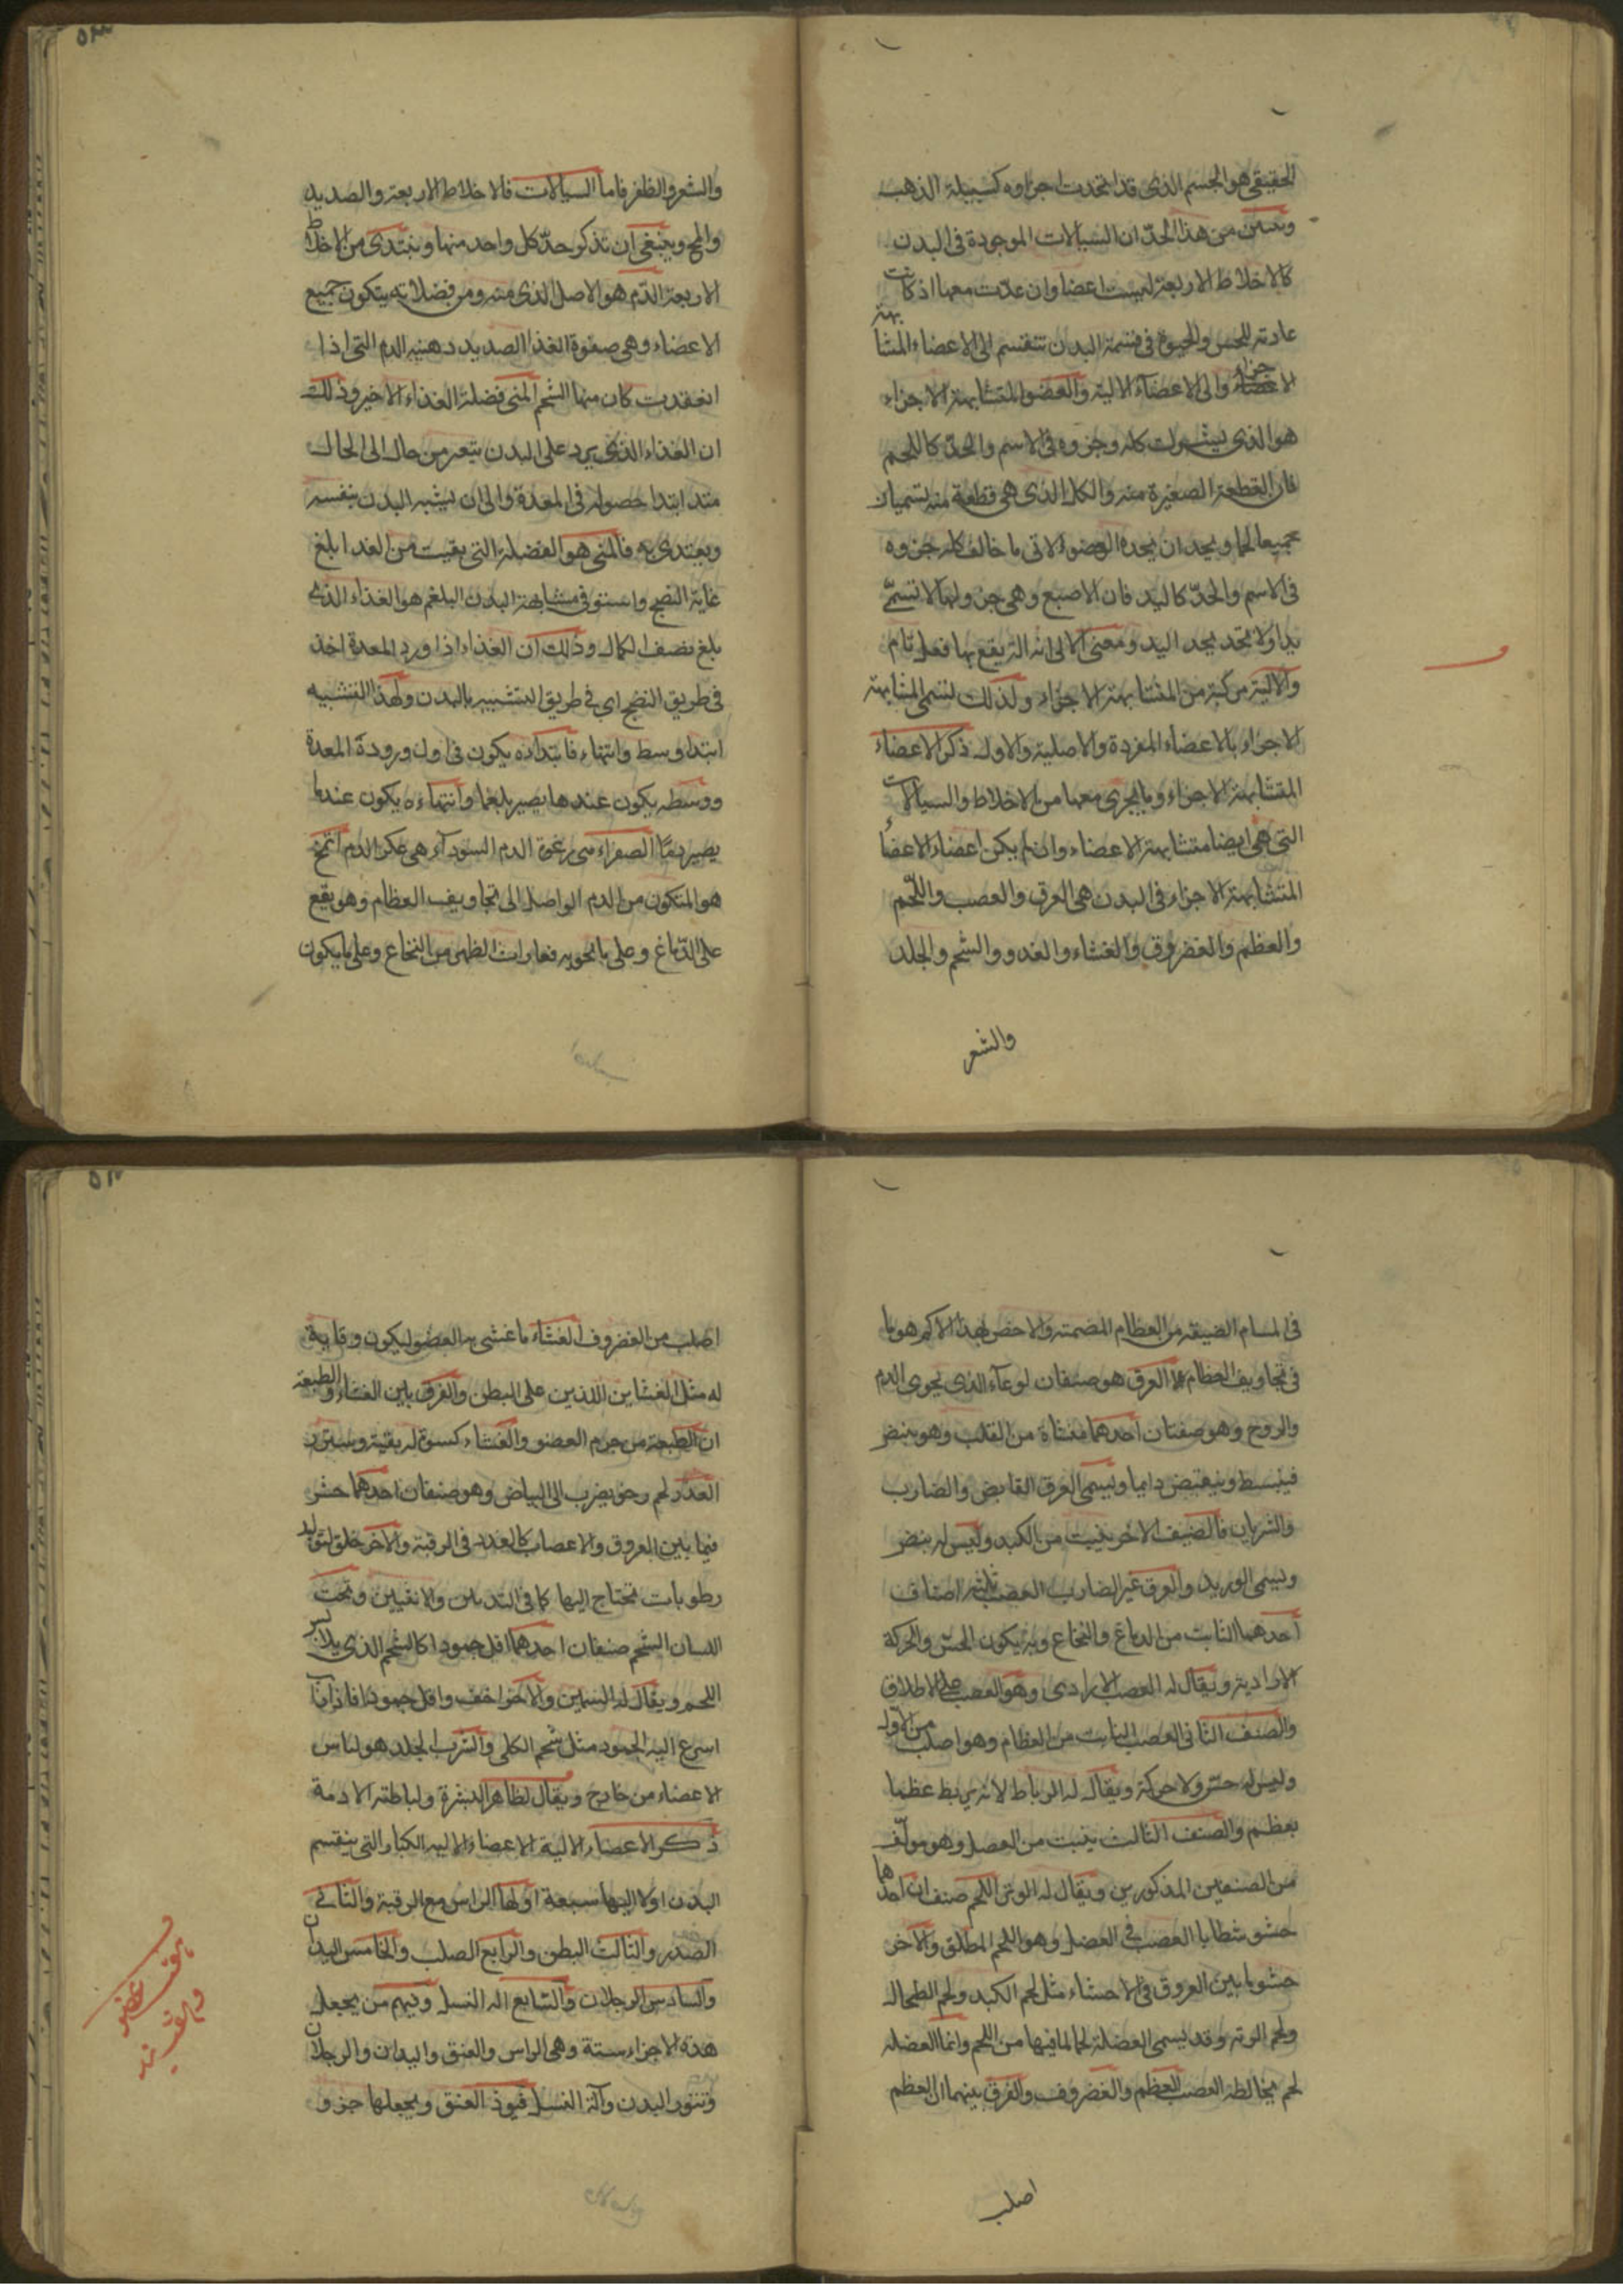 الحقيقي هو الجسم الذي قد اتحدت اجزاوه كسبيكة الذهب
وتبين من هذا الحدّ ان السيالات الموجودة في البدن
كالاخلاط الاربعة ليست اعضا وان عدّت معها اذ كانت
عادته للحس والحيوة في قسمة البدن تنقسم الى الاعضاء المتشابهة
الاجزاء والى الاعضآء الالية والعضو المتشابهة الاجزاء
هو الذي كله وجزوه في الاسم والحدّ كاللحم
فان القطعة الصغيرة منه والكل الذي هي قطعة منه تسميان
جميعا لحما ويحد ان بحده العضو الالى ما خالف كله جزوه
في الاسم والحدّ كاليد فان الاصبع وهي جزو لها لا تسمّى
يدا ولا تحد بحد اليد ومعنى الالى انه الة يقع بها فعل تام
والالية مركبة من المتشابهة الاجزاء ولذلك تسمى المتشابهة
الاجزاء بالاعضاء المفردة والاصلية والاول ذكر الاعضاء
المتشابهة الاجزاء وما يجرى معها من الاخلاط والسيالات
التي هي ايضا متشابهة الاعضاء وان لم يكن اعضاء الاعضاء
المتشابهة الاجزاء في البدن هي العرق والعصب واللحم
والعظم والغضروف والغشاء والغدد والشحم والجلد
والشعر
والشعر والظفر فاما السيالات فالاخلاط الاربعة والصديد
والمخ وينبغي ان نذكر حدّ كل واحد منها ونبتدى من الاخلاط
الاربعة الدّم هو الاصل الذي منه ومن فضلاته يتكون جميع
الاعضاء وهي صفوة الغذا الصديد دهنية الدم التي اذا
انعقدت كان منها الشحم المنى فضلة الغذاء الاخير وذلك
ان الغذاء الذي يرد على البدن يتغير من حال الى الحال
منذ ابتدا حصوله في المعدة والى ان يشبه البدن بنفسه
ويغتدى به فالمنى هو الفضلة التي بقيت من الغدا بلغ
غاية النضج واستوفى مشابهة البدن البلغم هو الغذاء الذي
بلغ نصف الكمال وذلك ان الغذاء اذا ورد المعدة اخذ
في طريق النضج اى في طريق التشبيه بالبدن ولهذا التشبيه
ابتدا وسط وانتهاء فابتداده يكون في اول وروده المعدة
ووسطه يكون عندها يصير بلغما وانتهاءه يكون عندما
يصير دمًا الصفراء هي رغوة الدم السودآء هي عكر الدم المخ
هو المتكون من الدم الواصل الى تجاويف العظام وهو يقع
على الدّماغ وعلى ما تحويه فقارات الظهر من النخاع وعلى ما يكون
في المسام الضيقة من العظام المصمتة والاخص بهذا الاسم هو ما
في تجاويف العظام العرق هو صنفان لوعآء الذي يحوى الدم
والروح وهو صنفان احدهما منشاة من القلب وهو ينبض
فينبسط وينقبض دايما ويسمى العرق القابض والضارب
والشريان فالصنف الاخر ينبت من الكبد وليس له نبض
ويسمى الوريد والعرق غير الضارب العصب ثلثة اصناف
احدهما النابت من الدماغ والنخاع وبه يكون الحسّ والحركة
الارادية ويقال له العصب الارادى وهو العصب على الاطلاق
والصنف الثانى العصب النابت من العظام وهو اصلب من الاول
وليس له حسّ ولا حركة ويقال له الرباط لانه يربط عظما
بعظم والصنف الثالث ينبت من العضل وهو مولّف
من الصنفين المذكورين ويقال له الوتر اللحم صنفان احدهما
حشو شظايا العصب في العضل وهو اللحم المطلق والاخر
حشو ما بين العروق في الاحشاء مثل لحم الكبد ولحم الطحال
ولحم الرئة وقد يسمى العضلة لحما لما فيها من اللحم وانما العضلة
لحم يخالطه العصب العظم والغضروف والفرق بينهما ان العظم
اصلب
اصلب من الغضروف الغشاء ما غشى به العضو ليكون وقاية
له مثل الغشاين اللذين على البطن والفرق بين الغشاء والطبقة
ان الطبقة من جرم العضو والغشاء كسوة له يقيه ويستره
الغدد لحم رخو يضرب الى البياض وهو صنفان احدهما حشو
فيما بين العروق والاعصاب كالغدد في الرقبة والاخر خلق لتوليد
رطوبات تحتاج اليها كما في الثديين والانثيين وتحت
اللسان الشحم صنفان احدهما اقل جمودا كالشحم الذي يلابس
اللحم ويقال له السمين والاخر اخف واقل جمودا فاذا ذاب
اسرع اليه الجمود مثل شحم الكلى والثرب الجلد هو لباس
الاعضاء من خارج ويقال لظاهره البشرة ولباطنه الادمة
ذكر الاعضاء الالية الاعضاء الاليه الكبار التي ينقسم
البدن اولا اليها سبعة اولها الراس مع الرقبة والثاني
الصدر والثالث البطن والرابع الصلب والخامس اليدان
والسادس الرجلان والسابع الة النسل ومنهم من يجعل
هذه الاجزاء ستة وهى الراس والعنق واليدان والرجلان
وتنور البدن وآلة النسل العنق ويجعلها جزو